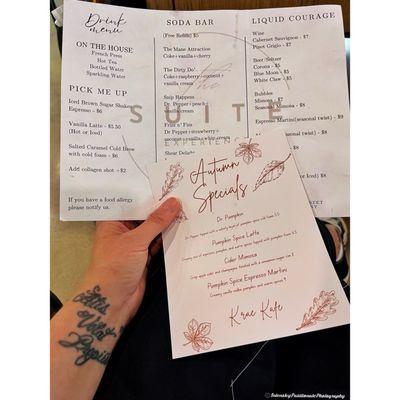 Drink
menu
ON THE HOUSE
French Press
Hot Tea
Bottled Water
Sparkling Water
PICK ME UP
Iced Brown Sugar Shaken
Espresso - $6
Vanilla Latte - $5.50
(Hot or Iced)
Salted Caramel Cold Brew
with cold foam - $6
Add collagen shot +$2
If you have a food allergy
please notify us.
SODA BAR
(Free Refills) $5
The Mane Attraction
Coke+vanilla+cherry
The Dirty Do'
Coke+raspberry+coconut+
vanilla cream
Snip Happens
Dr. Pepper+peach+
cream
Friz n' Fizz
Dr Pepper+strawberry+
coconut+vanilla+whip cream
Shear Delight
LIQUID COURAGE
Wine
Cabernet Sauvignon - $7
Pinot Grigio - $7
Beer/Seltzer
Corona - $5
Blue Moon - $5
White Claw - $5
Bubbles
Mimosa - $7
Seasonal Mimosa - $8
Espresso Martini (seasonal twist) - $9
the
SUITE
EXPERIENCE
Autumn
Specials
Dr. Pumpkin
Pumpkin Spice Latte
Cider Mimosa
Crisp apple cider and champagne finished with a cinnamon sugar rim
Pumpkin Spice Espresso Martini
Creamy vanilla vodka pumpkin and warm spices
Krae Kafe
Alis
Volat
Propriis
IntenslyPassionatePhotography